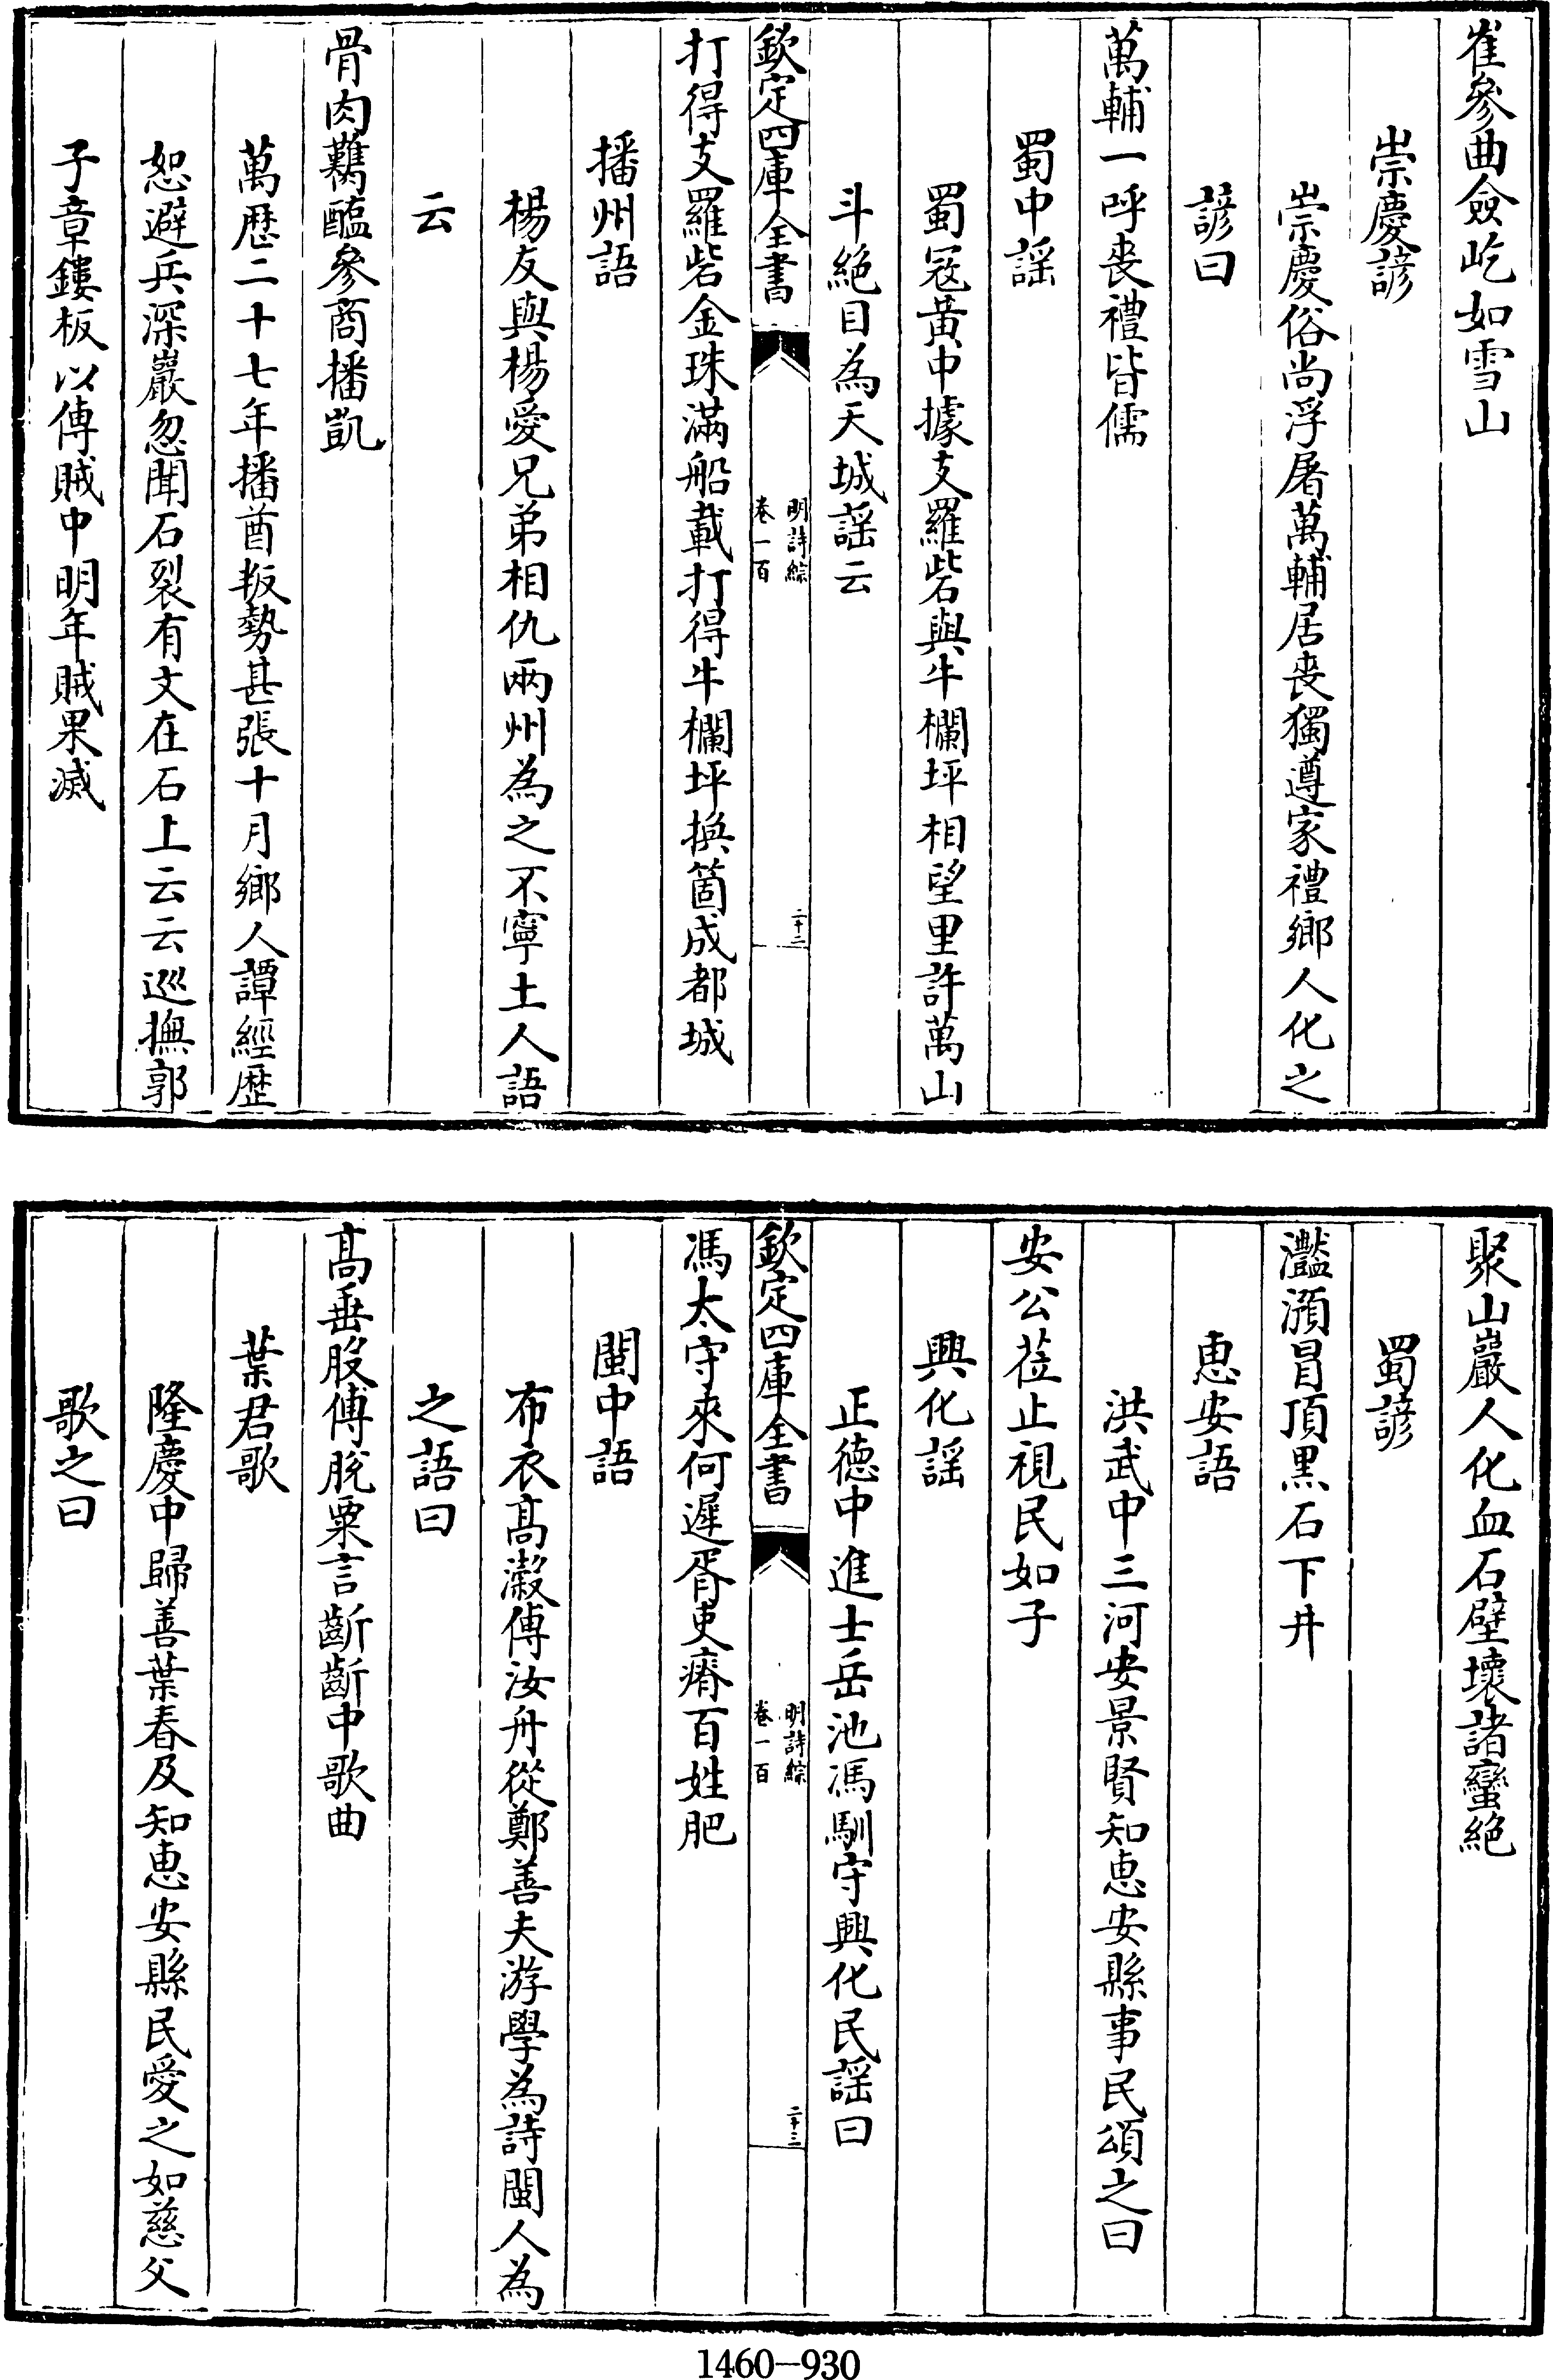 崔參曲僉屹如雪山
崇慶諺
崇慶俗尚浮屠萬輔居喪獨遵家禮鄉人化之
諺曰
萬輔一呼喪禮皆儒
蜀中謡
蜀冦黄中據支羅砦與牛欄坪相望里許萬山
斗絶目為天城謡云
欽定四庫全書
明詩綜
卷一百
二十二
打得支羅砦金珠滿船載打得牛欄坪換箇成都城
播州語
楊友與楊愛兄弟相仇兩州為之不寧土人語
云
骨肉䕼醢參商播凱
萬歴二十七年播酋叛勢甚張十月鄉人譚經歴
恕避兵深巖忽聞石裂有文在石上云云巡撫郭
子章鏤板以傳賊中明年賊果滅
聚山巖人化血石壁壞諸蠻絶
蜀諺
灩澦冒頂黒石下井
恵安語
洪武中三河安景賢知恵安縣事民頌之曰
安公莅止視民如子
興化謡
正德中進士岳池馮馴守興化民謡曰
欽定四庫全書
明詩綜
卷一百
二十三
馮太守來何遲胥吏瘠百姓肥
閩中語
布衣髙瀔傅汝舟從鄭善夫游學為詩閩人為
之語曰
髙垂股傅脫粟言齗齗中歌曲
葉君歌
隆慶中歸善葉春及知恵安縣民愛之如慈父
歌之曰
1460-930